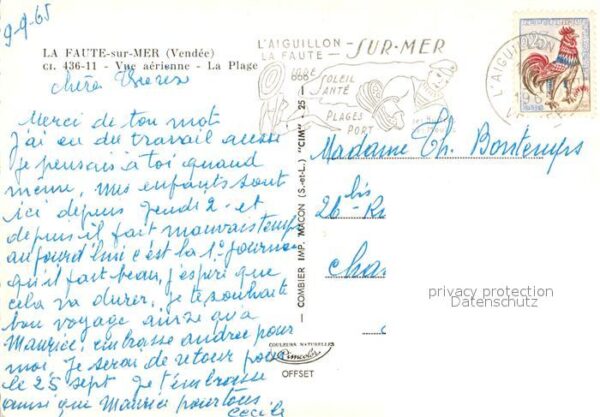 9-9-65
LA FAUTE-sur-MER (Vendée)
CI. 436-11 - Vue aérienne - La Plage
chère
Merci de ton mot
j'ai eu du travail aussi
je pensais à toi quand
même, mes enfants sont
ici depuis Jeudi 2 - et
depuis il fait mauvais temps
aujourd'hui c'est la 1e journée
qu'il fait beau, j'espère que
cela va durer, je te souhaite
bon voyage ainsi qu'à
Maurice, embrasse andrée pour
moi, je serai de retour pour
le 25 sept je t'embrasse
ainsi que Maurice pour tous
Cécile
L'AIGUILLON
LA FAUTE - SUR-MER
SOLEIL
SANTÉ
PLAGES
PORT
COMBIER IMP. MACON (S.-et-L.) "CIM" - 25 -
COULEURS NATURELLES
Cimcolor
OFFSET
L'AIGUILLON
Madame Th. Bontemps
26 bis Ru
cha
privacy protection
Datenschutz